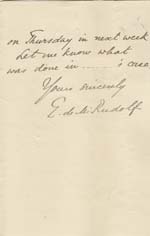 on Thursday in next week
Let me know what
was done in ______'s case
Yours sincerely
E. de M. Rudolf